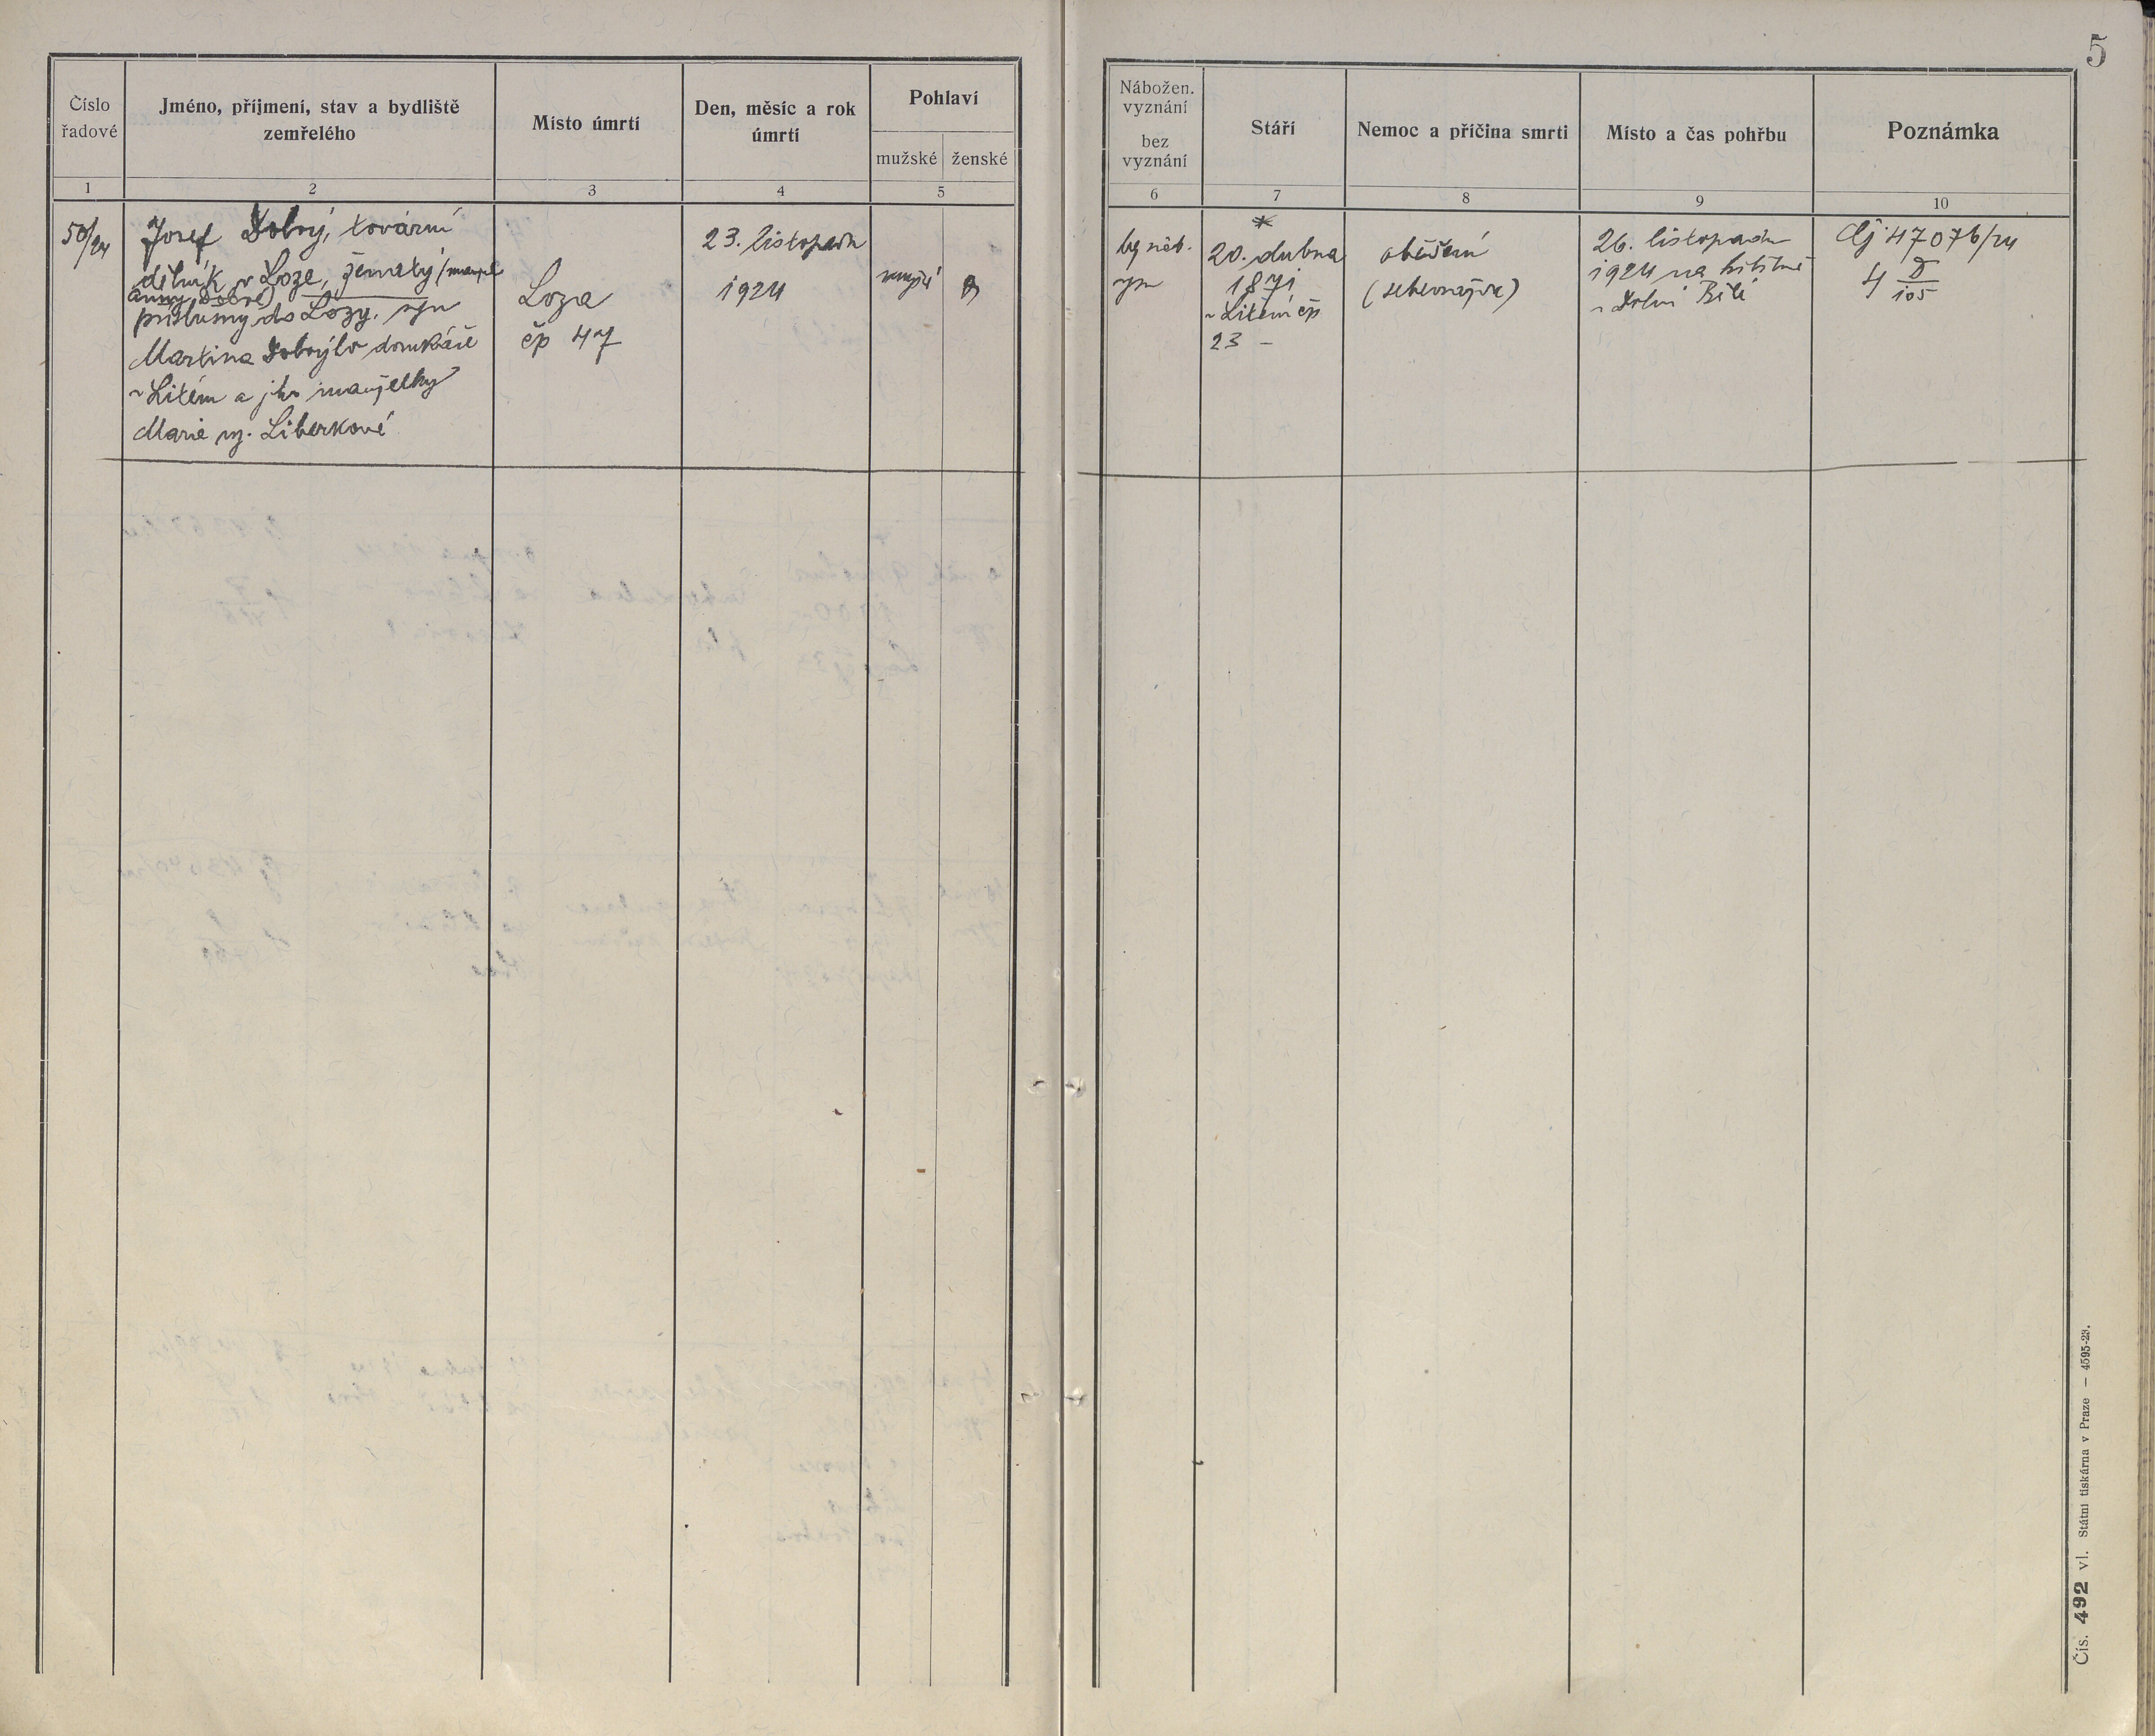 5
Číslo
řadové
Jméno, příjmení, stav a bydliště
zemřelého
Místo úmrtí
Den, měsíc a rok
úmrtí
Pohlaví
mužské ženské
Nábožen.
vyznání
bez
vyznání
Stáří
Nemoc a příčina smrti
Místo a čas pohřbu
Poznámka
1 2 3 4 5 6 7 8 9 10
50/24
Josef Dobrý, tovární
dělník v Loze, ženatý
Anny Dobré)
příslušný do Lozy. syn
Martina Dobrýho domkáře
v Litém a jeho manželky
Marie roz. Liberkové
Loza
čp 47
23. listopadu
1924
mužské
bez náb.
vyzn
*
20. dubna
1871
v Litém čp
23 –
oběšení
(sebevražda)
26. listopadu
1924 na hřbitově
v Dolní Bělé
čj 47076/24
4 D/105
Čís. 492 vl. Státní tiskárna v Praze — 4595-23.